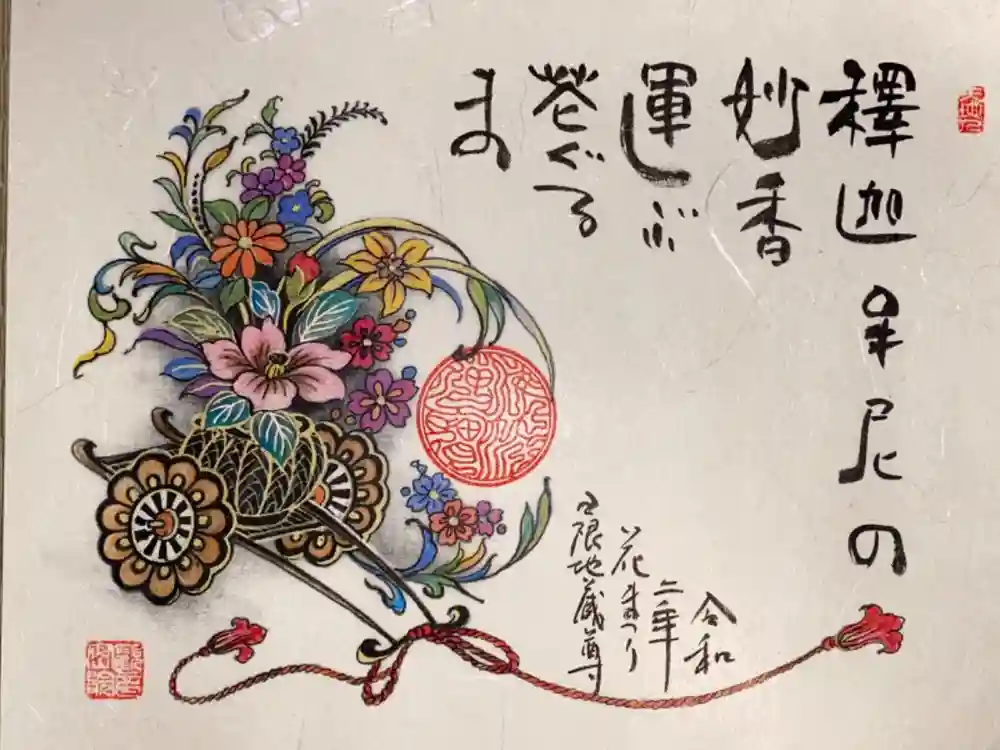 釋迦牟尼の
妙香
運ぶ
花ぐる
ま
令和
二年
花まつり
限地蔵尊